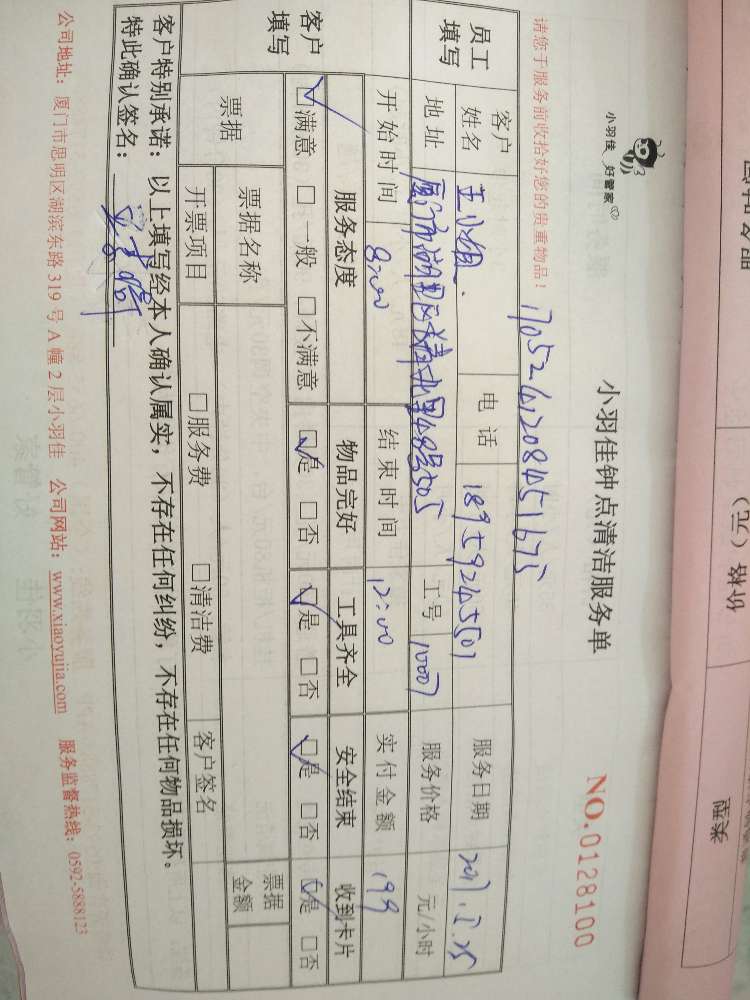 小羽佳 好管家
小羽佳钟点清洁服务单
NO.0128100
请您于服务前收拾好您的贵重物品！
客户姓名 王小姐 电话 18959245501 服务日期 2017.5.25
员工填写
地址 厦门市湖里区 北里48号505 工号 10007 服务价格 元/小时
开始时间 8:00 结束时间 12:00 实付金额 199
客户填写
服务态度 物品完好 工具齐全 安全结束 收到卡片
☑满意 □一般 □不满意 ☑是 □否 ☑是 □否 ☑是 □否 ☑是 □否
票据 票据名称 票据金额
开票项目 □服务费 □清洁费 客户签名
客户特别承诺：以上填写经本人确认属实，不存在任何纠纷，不存在任何物品损坏。
特此确认签名：
公司地址：厦门市思明区湖滨东路 319 号 A 幢 2 层小羽佳 公司网站：www.xiaoyujia.com 服务监督热线：0592-5888123
价格（元）